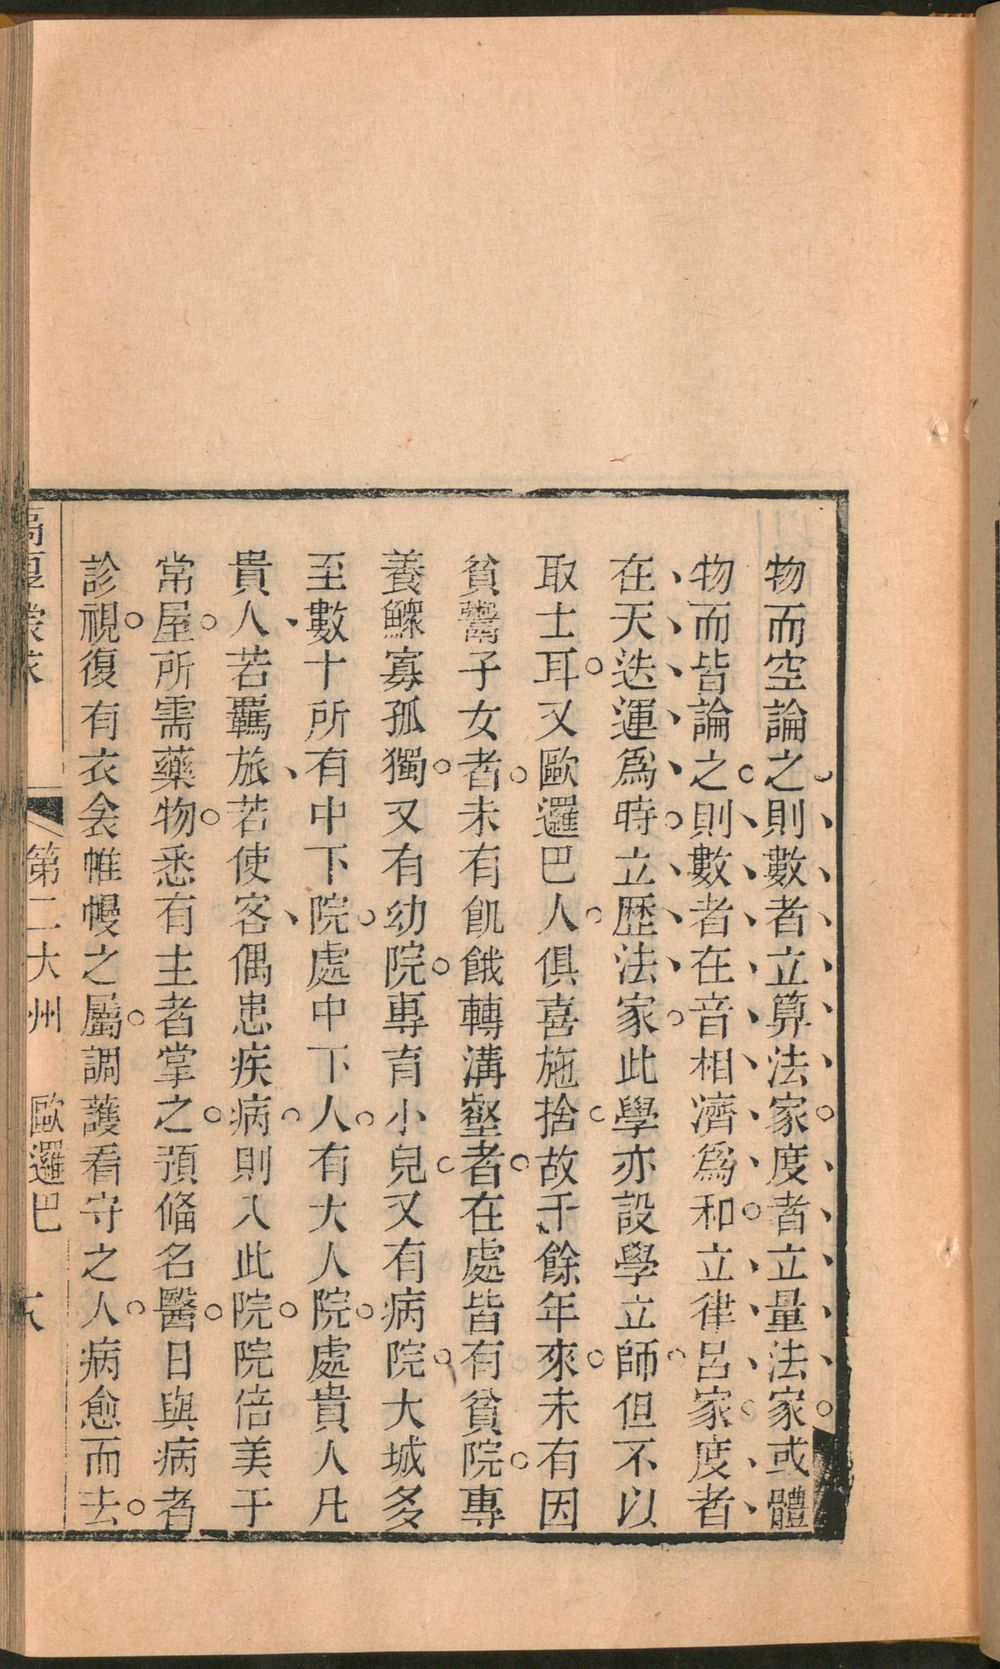 物而空論之則數者立算法家度者立量法家或體
物而皆論之則數者在音相濟爲和立律呂家度者
在天迭運爲時立歷法家此學亦設學立師但不以
取士耳又歐邏巴人俱喜施捨故千餘年來未有因
貧鬻子女者未有飢餓轉溝壑者在處皆有貧院專
養鰥寡孤獨又有幼院專育小兒又有病院大城多
至數十所有中下院處中下人有大人院處貴人凡
貴人若羈旅若使客偶患疾病則入此院院倍美于
常屋所需藥物悉有主者掌之預俻名醫日與病者
診視復有衣衾帷幔之屬調護看守之人病愈而去
第二大州 歐邏巴